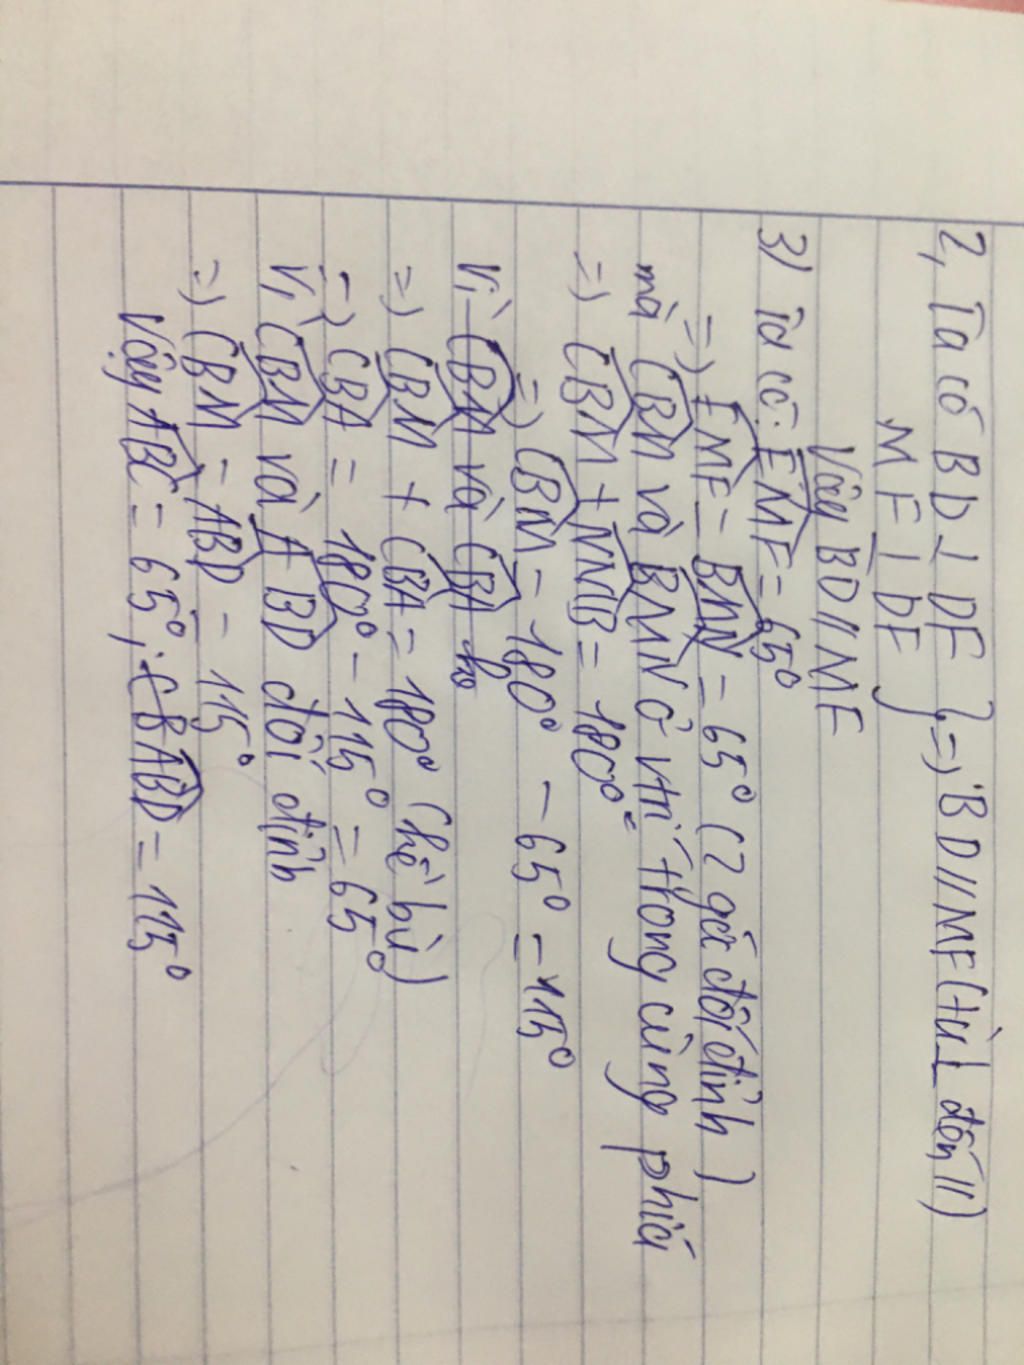 2, Ta có BD ⊥ DF } => BD // MF (từ ⊥ đến //)
MF ⊥ DF
Vậy BD // MF
3) Ta có: EMF = 65°
=) EMF = BMN = 65° (2 góc đối đỉnh)
mà CBM và BMN ở vtrí trong cùng phía
=) CBM + NMB = 180°
=) CBM = 180° - 65° = 115°
Vì CBM và CBA kb
=) CBM + CBA = 180° (kề bù)
=) CBA = 180° - 115° = 65°
Vì CBM và ABD đối đỉnh
=) CBM = ABD = 115°
Vậy ABC = 65°, ABD = 115°